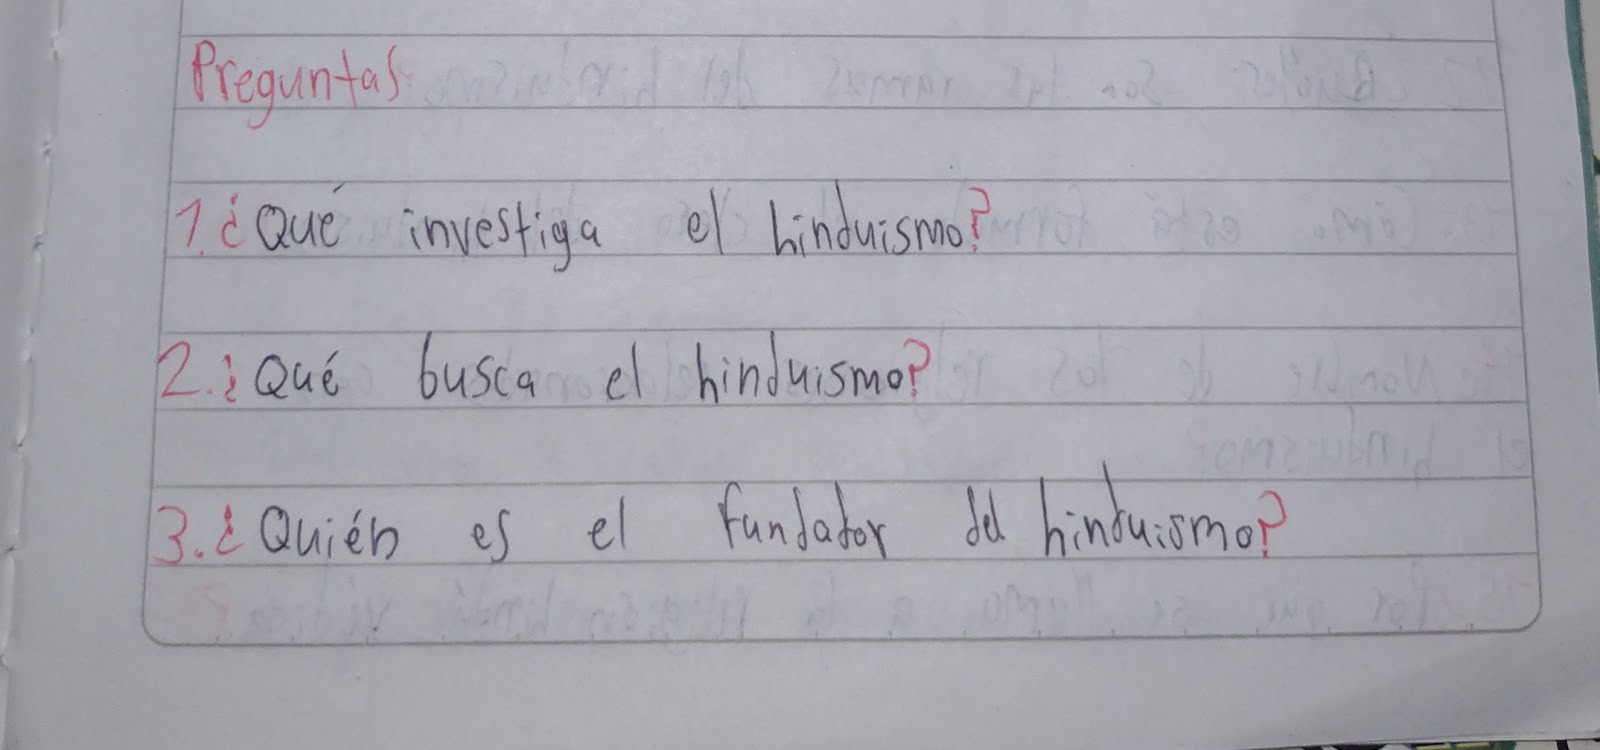 Preguntas
1. ¿Qué investiga el hinduismo?
2. ¿Qué busca el hinduismo?
3. ¿Quién es el fundador del hinduismo?